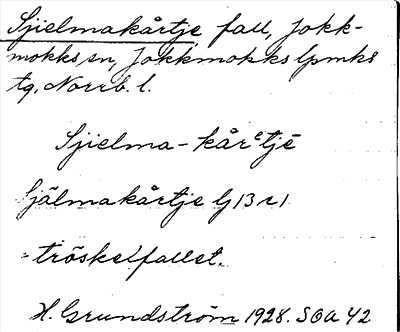 Sjielmakårtje, fall, Jokk-
mokks sn, Jokkmokks lpmks
tg, Norrb. l.
Sjielma-kårᵉtjē
Själmakårtje lj 13 r 1
"tröskelfallet."
H. Grundström 1928. SOA 42